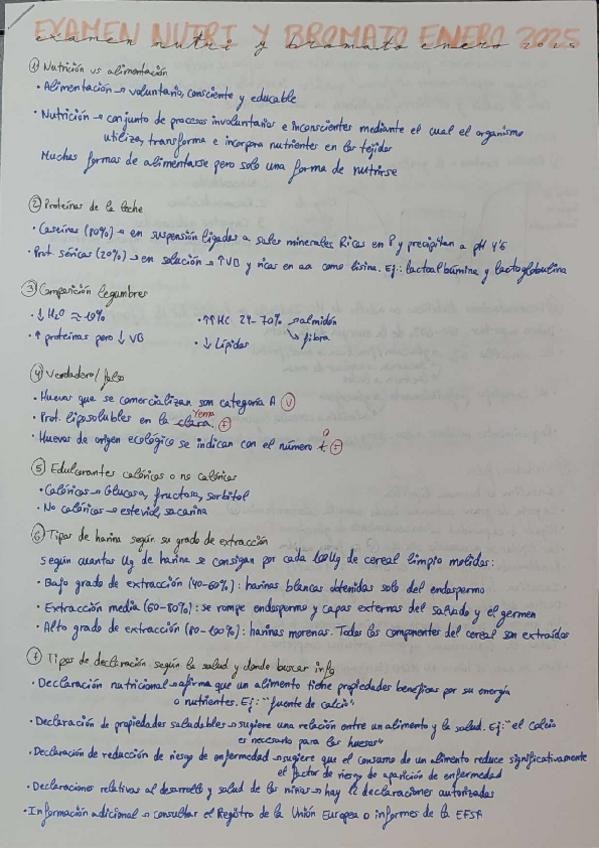 EXAMEN NUTRI Y BROMATO ENERO 2025
examen nutri y bromato enero 2025
① Nutrición vs alimentación
• Alimentación → voluntario, consciente y educable
• Nutrición → conjunto de procesos involuntarios e inconscientes mediante el cual el organismo
utiliza, transforma e incorpora nutrientes en los tejidos
Muchas formas de alimentarse pero solo una forma de nutrirse
② Proteínas de la leche
• Caseínas (80%) → en suspensión ligadas a sales minerales Ricas en P y precipitan a pH 4'6
• Prot. séricas (20%) → en solución → ↑VB y ricas en aa como lisina. Ej: lactoalbumina y lactoglobulina
③ Composición legumbres
• ↓ H₂O ≈ 10% • ↑↑ HC 24-70% → almidón
↘ fibra
• ↑ proteínas pero ↓ VB • ↓ Lípidos
④ Verdadero/falso
• Huevos que se comercializan son categoría A Ⓥ
• Prot. liposolubles en la clara. yema Ⓕ
• Huevos de origen ecológico se indican con el número 1. 0 Ⓕ
⑤ Edulcorantes calóricos o no calóricos
• Calóricos → Glucosa, fructosa, sorbitol
• No calóricos → estevid, sacarina
⑥ Tipos de harina según su grado de extracción
según cuantos Kg de harina se consigan por cada 100Kg de cereal limpio molidos:
• Bajo grado de extracción (40-60%): harinas blancas obtenidas solo del endospermo
• Extracción media (60-80%): se rompe endospermo y capas externas del salvado y el germen
• Alto grado de extracción (80-100%): harinas morenas. Todos los componentes del cereal son extraídos
⑦ Tipos de declaración según la salud y donde buscar info
• Declaración nutricional → afirma que un alimento tiene propiedades benéficas por su energía
o nutrientes. Ej: "fuente de calcio"
• Declaración de propiedades saludables → sugiere una relación entre un alimento y la salud. Ej: "el calcio
es necesario para los huesos"
• Declaración de reducción de riesgo de enfermedad → sugiere que el consumo de un alimento reduce significativamente
el factor de riesgo de aparición de enfermedad
• Declaraciones relativas al desarrollo y salud de los niños → hay 12 declaraciones autorizadas
• Información adicional → consultar el Registro de la Unión Europea o informes de la EFSA